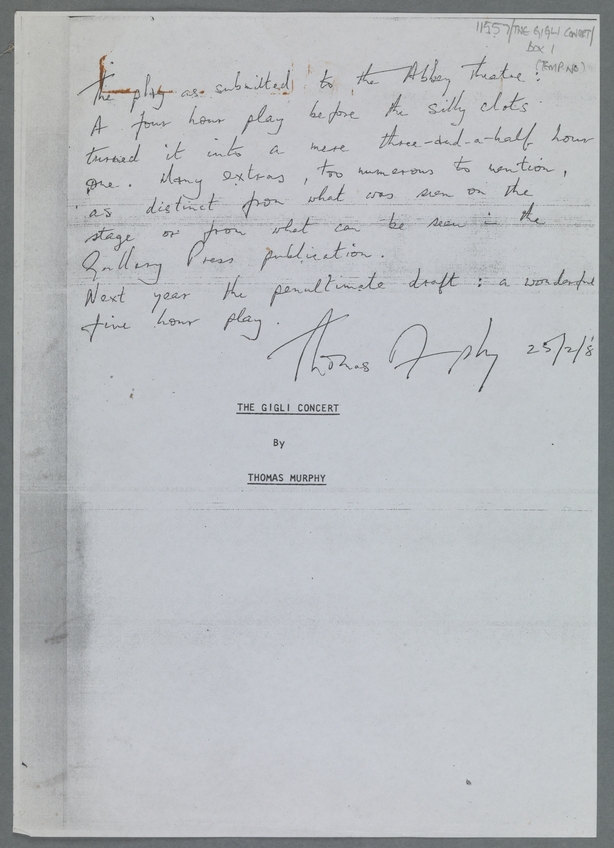 11557/THE GIGLI CONCERT/
BOX 1
(TEMP NO)
The play as submitted to the Abbey Theatre:
A four hour play before the silly clots
turned it into a mere three-and-a-half hour
one. Many extras, too numerous to mention,
as distinct from what was seen on the
stage or from what can be seen in the
Gallery Press publication.
Next year the penultimate draft: a wonderful
five hour play.
Thomas Murphy 25/2/8
THE GIGLI CONCERT
By
THOMAS MURPHY